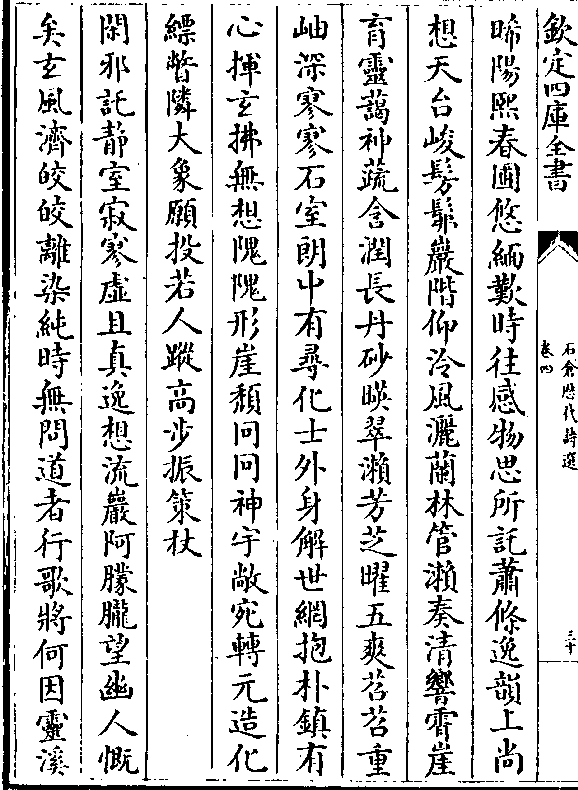 欽定四庫全書
石倉歴代詩選
卷四
三十
晞陽熙春圃悠緬歎時往感物思所託蕭條逸韻上尚
想天台峻髣髴巖階仰泠風灑蘭林管瀨奏清響霄崖
育靈藹神蔬含潤長丹砂暎翠瀨芳芝曜五爽苕苕重
岫深寥寥石室朗中有尋化士外身解世網抱朴鎮有
心揮玄拂無想隗隗形崖頽冋冋神宇敞宛轉元造化
縹瞥隣大象願投若人蹤高步振策杖
閑邪託靜室寂寥虛且真逸想流巖阿朦朧望幽人慨
矣玄風濟皎皎離染純時無問道者行歌將何因靈溪